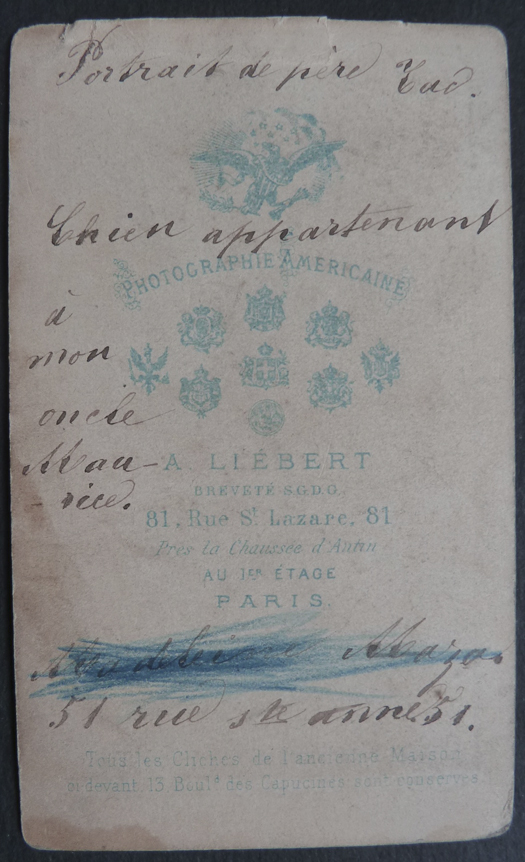 Portrait de père Zud.
Chien appartenant
PHOTOGRAPHIE AMERICAINE
à
mon
oncle
Mau-
-rice.
A. LIÉBERT
BREVETÉ S.G.D.G.
81, Rue St Lazare, 81
Près la Chaussée d'Antin
AU 1ER ÉTAGE
PARIS.
Madeleine
51 rue ste anne 51.
Tous les Clichés de l'ancienne Maison
ci devant 13 Bould des Capucines sont conservés